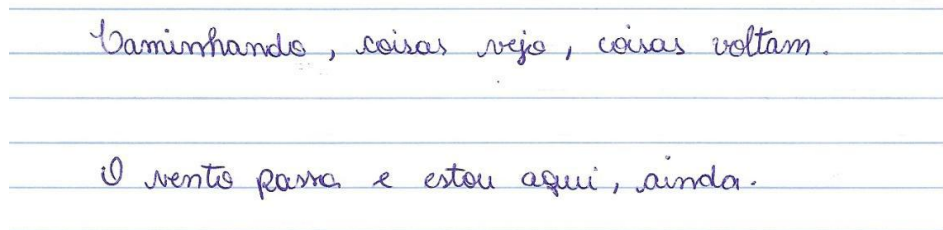 Caminhando, coisas vejo, coisas voltam.
O vento passa e estou aqui, ainda.